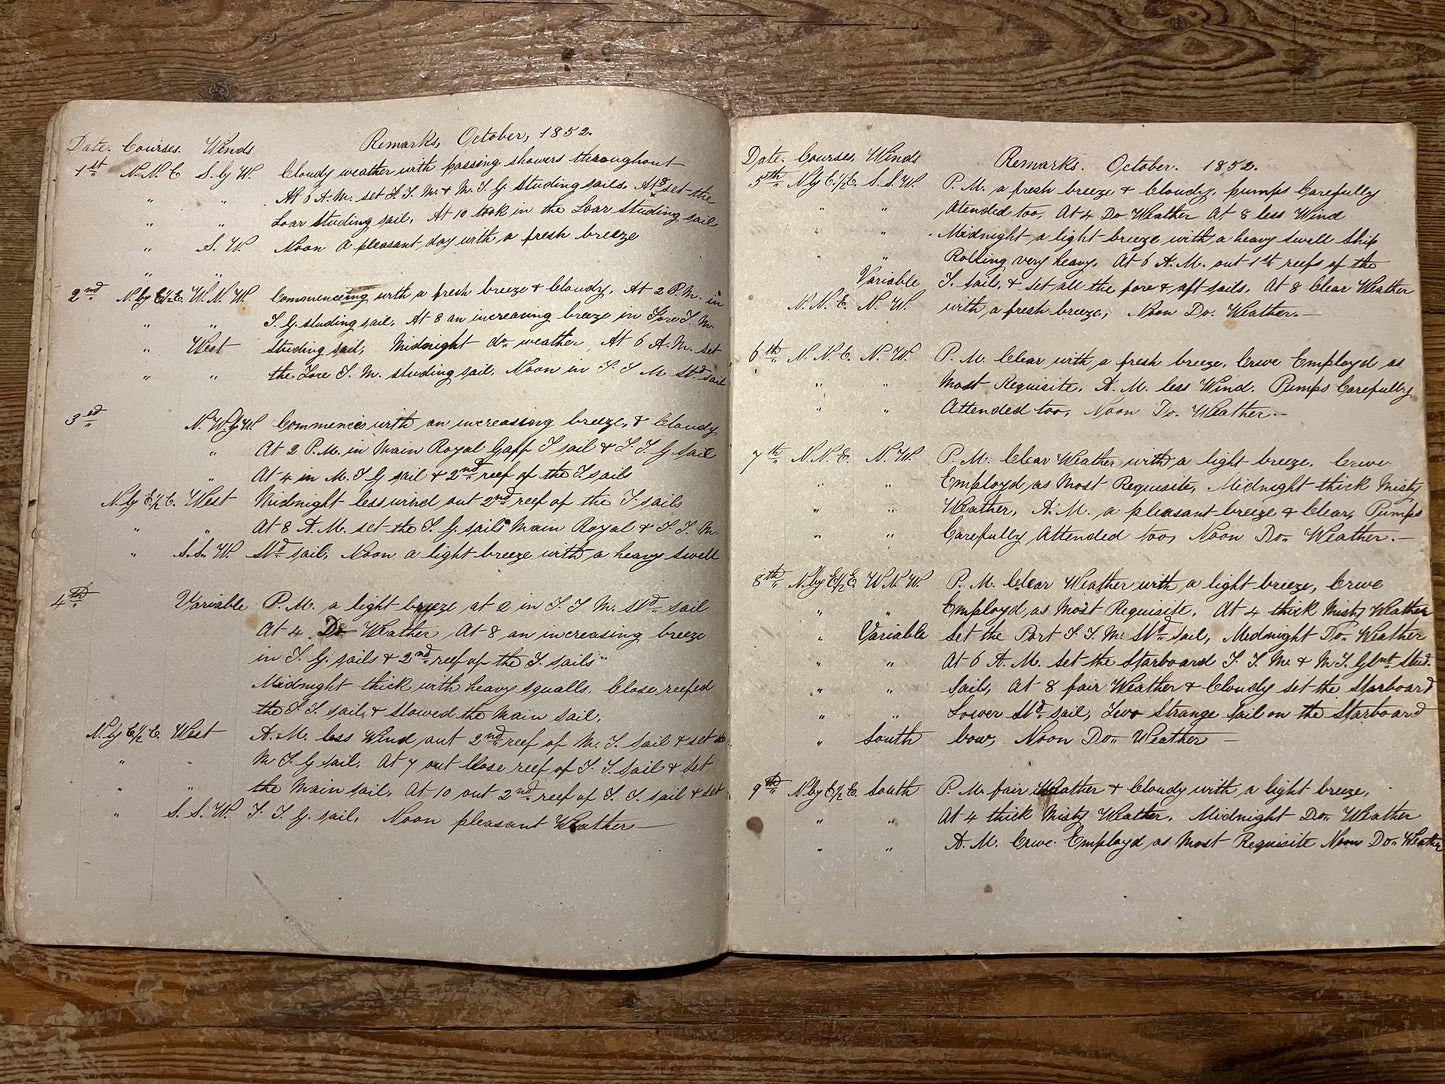 Date. Courses. Winds Remarks, October, 1852.
1st N.N.E S.by W. Cloudy weather with passing showers throughout
" " At 6 A.M. set L T M & M T G Studding sails. At 7 set the
" " Loar studing sail, At 10 took in the Loar studing sail
" S. W. Noon a pleasant day with a fresh breeze
" "
2nd N by E½E W.N.W. Commencing with a fresh breeze & Cloudy, At 2 P.M. in
" " T. G. studing sail, At 8 an increasing breeze in Fore T. M.
" West studing sail, Midnight do. weather, At 6 A.M. set
" " the Fore T. M. studing sail, Noon in F T M Std sail
3rd N. W by W. Commences with an increasing breeze, & Cloudy,
" At 2 P.M. in Main Royal Gaff T sail & F. T. G sail
" At 4 in M. T G sail & 2nd reef of the T. sails
N. by E½E. West Midnight less wind out 2nd reef of the T. sails
" " At 8 A.M. set the T. G. sails Main Royal & F. T. M.
" S.S. W Std sail, Noon a light breeze with a heavy swell
4th Variable P.M. a light breeze at 2 in F T M. Std sail
At 4 Do Weather At 8 an increasing breeze
in T. G. sails & 2nd reef of the T. sails
Midnight thick with heavy squalls. Close reefed
the F T sail, & stowed the Main sail,
N. by E½E West A.M. less Wind out 2nd reef of M. T. sail & set
" " M T G sail, At 7 out Close reef of F. T. sail & set
" " the Main sail, At 10 out 2nd reef of F. T. sail & set
" S. S. W. F. T G. sail, Noon pleasant Weather —
Date. Courses, Winds Remarks. October. 1852.
5th N by E½E. S. S. W. P. M. a fresh breeze & Cloudy, pumps Carefully
" " Atended too, At 4 Do Weather At 8 less Wind
" " Midnight a light breeze with a heavy swell Ship
" " Rolling very heavy. At 6 A.M. out 1st reefs of the
Variable T. sails, & set all the fore & aft sails, At 8 Clear Weather
N. N. E. N. W. with a fresh breeze, Noon Do. Weather. —
6th N. N. E N. W. P. M. Clear with a fresh breeze, Crwe Employd as
" " Most Requisite, A. M. less Wind. Pumps Carefully
" " Attended too, Noon Do. Weather. —
7th N. N. E. N. W. P. M. Clear Weather with a light breeze. Crwe
" " Employd as Most Requisite, Midnight thick Misty
" " Weather, A. M. a pleasant breeze & Clear, Pumps
" " Carefully Attended too, Noon Do. Weather. —
8th N. by E½E W. N. W. P. M. Clear Weather with a light breeze, Crwe
" " Employd as Most Requisite, At 4 thick Misty Weather
" Variable Set the Port F T M. Std sail, Midnight Do. Weather
" " At 6 A. M. Set the Starboard F. T. M. & M. T. Glnt Stud.
" " Sail, At 8 fair Weather & Cloudy set the Starboard
" " Lower Std sail, Two Strange Sail on the Starboard
" South bow, Noon Do. Weather —
9th N by E½E. South P. M. fair Weather & Cloudy with a light breeze,
" " At 4 thick Misty Weather, Midnight Do. Weather
" " A. M. Crwe Employd as Most Requisite Noon Do. Weather